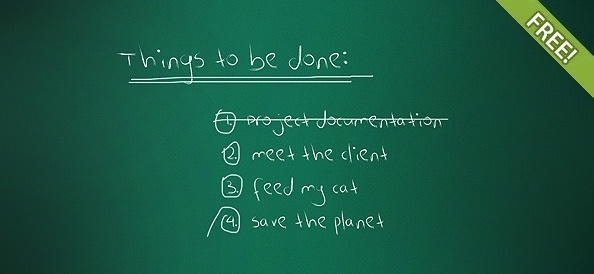 FREE!
Things to be done:
1. project documentation
2. meet the client
3. feed my cat
4. save the planet